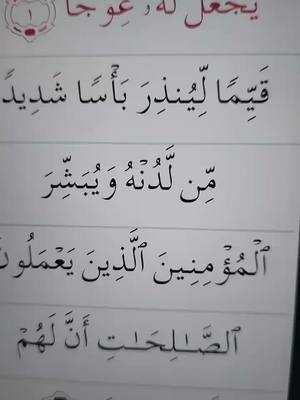 يَجْعَل لَّهُۥ عِوَجَا ١
قَيِّمًا لِّيُنذِرَ بَأْسًا شَدِيدً
مِّن لَّدُنْهُ وَيُبَشِّرَ
ٱلْمُؤْمِنِينَ ٱلَّذِينَ يَعْمَلُونَ
ٱلصَّـٰلِحَـٰتِ أَنَّ لَهُمْ